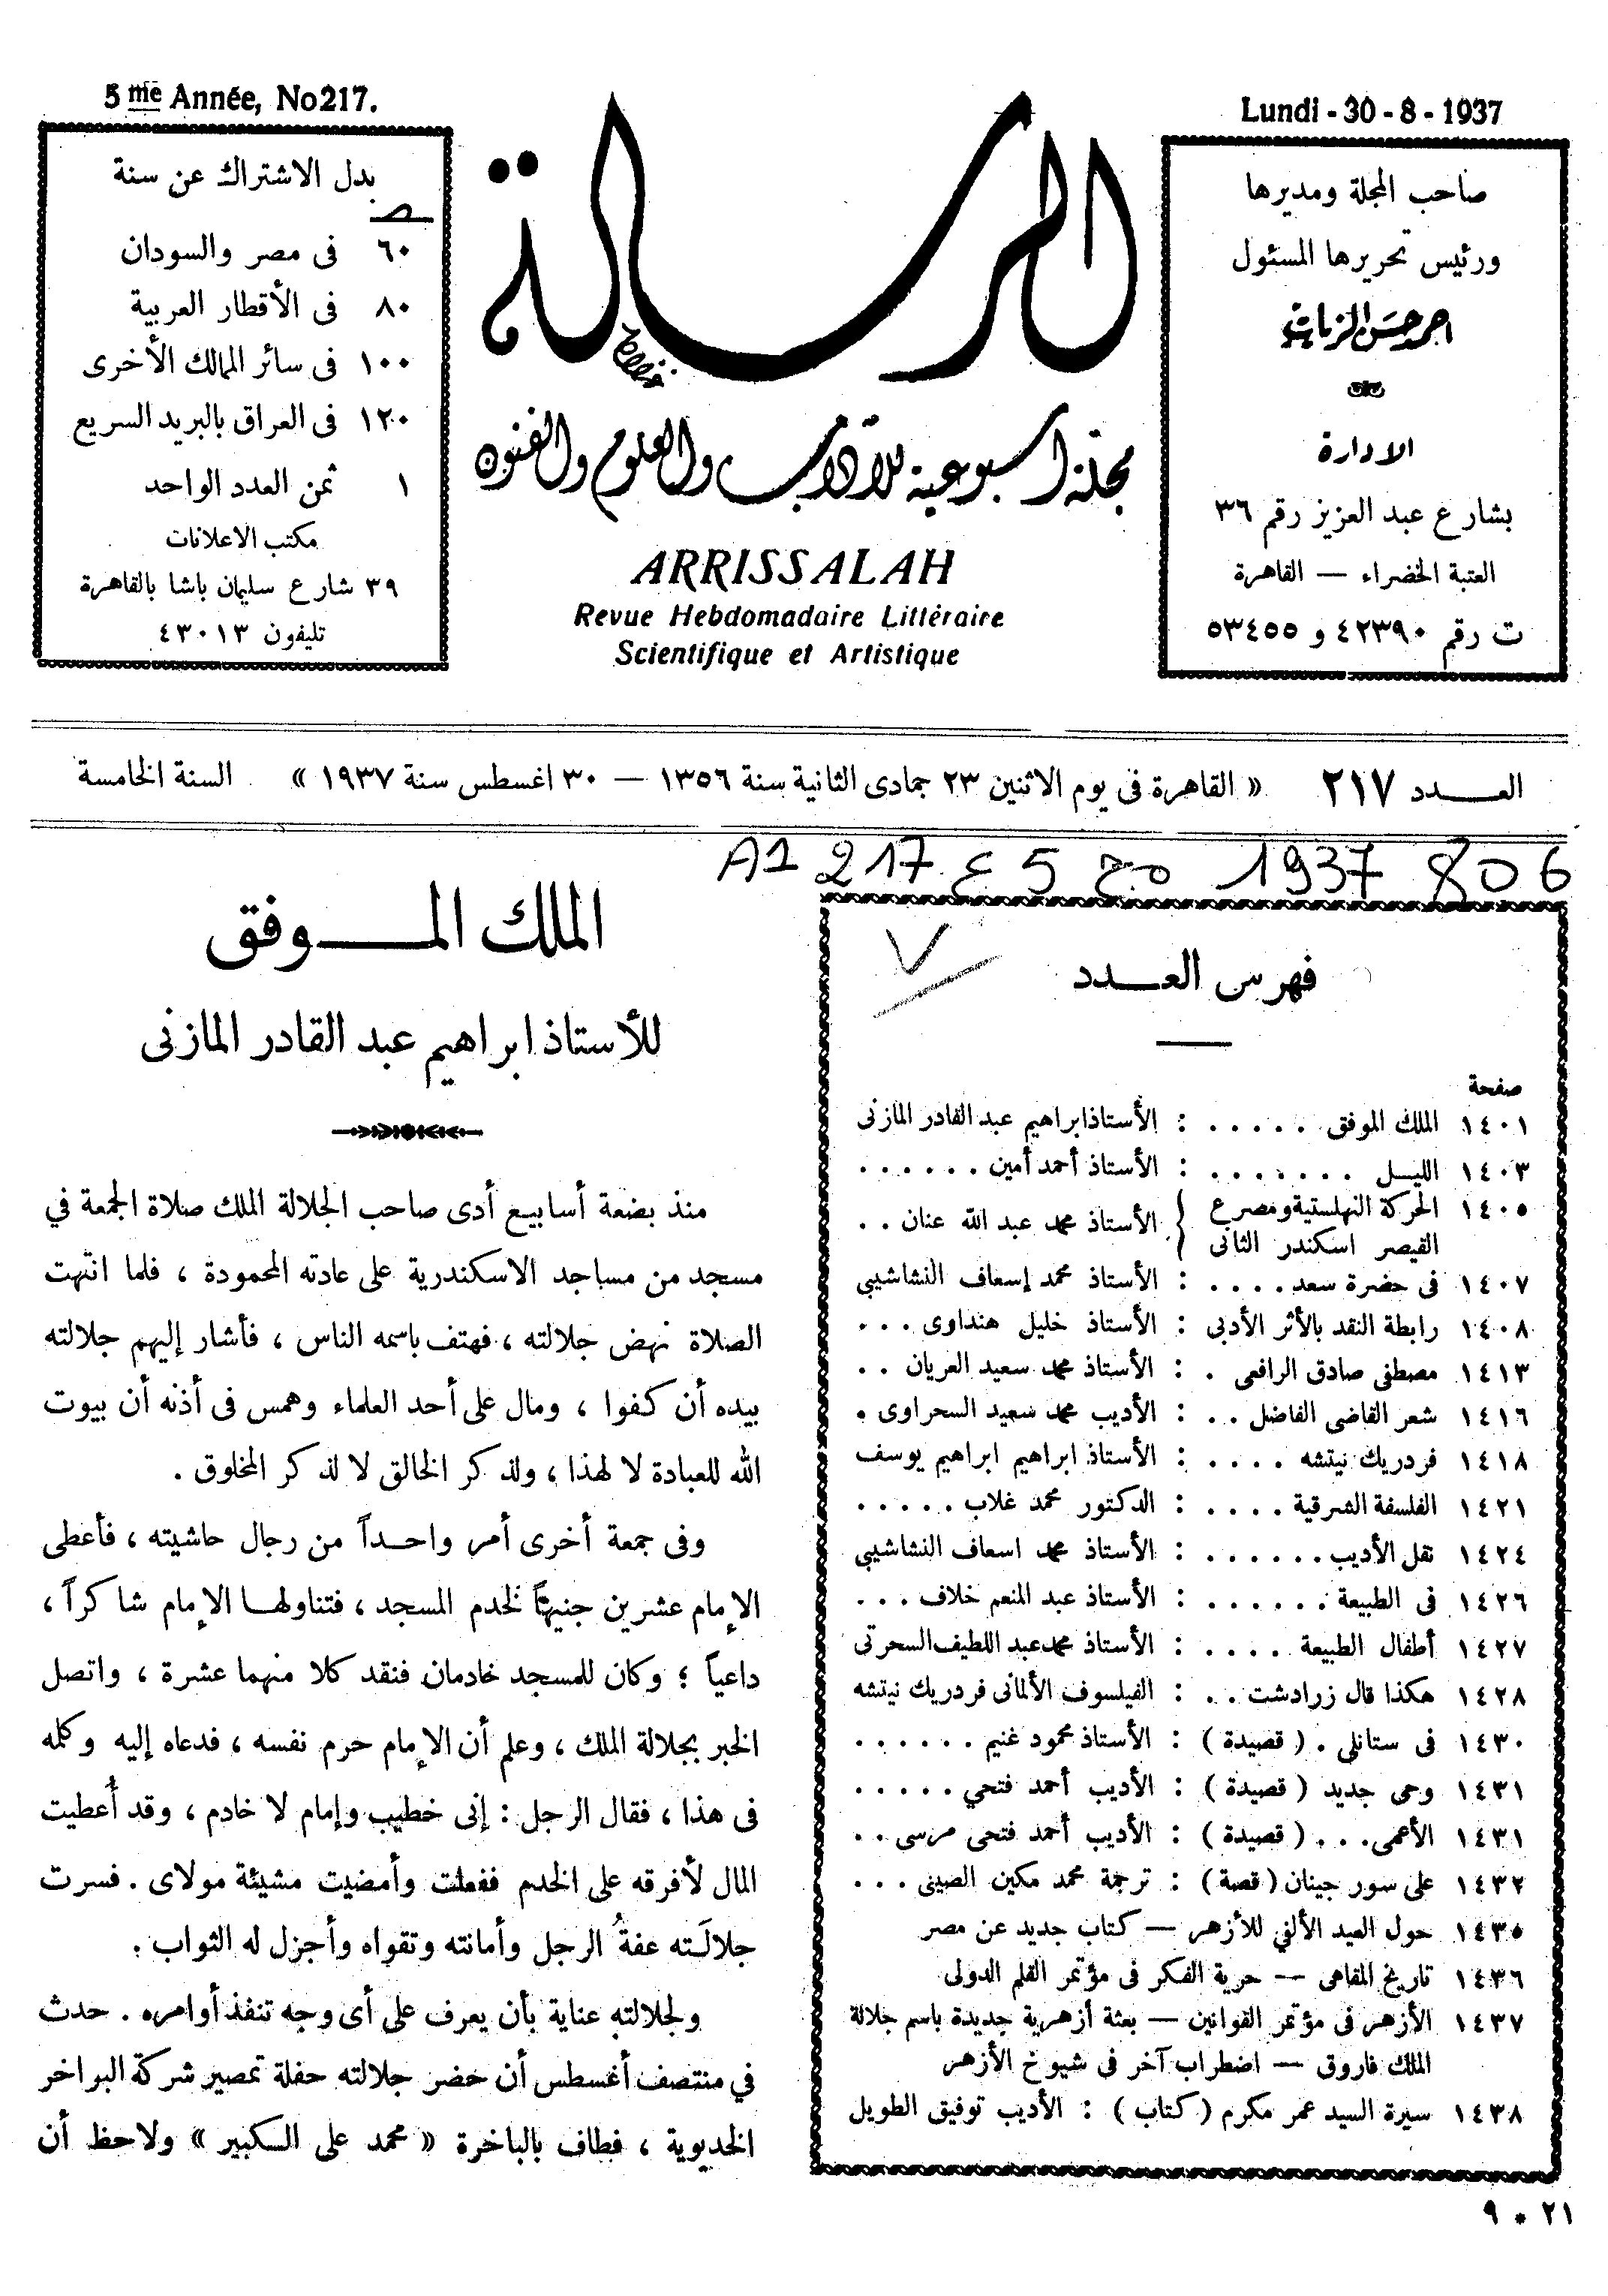 5me Année, No217.
Lundi - 30 - 8 - 1937
صاحب المجلة ومديرها
ورئيس تحريرها المسئول
احمد حسن الزيات
الادارة
بشارع عبد العزيز رقم ٣٦
العتبة الخضراء — القاهرة
ت رقم ٤٢٣٩٠ و ٥٣٤٥٥
الرسالة
مجلة أسبوعية للآداب والعلوم والفنون
ARRISSALAH
Revue Hebdomadaire Littéraire
Scientifique et Artistique
بدل الاشتراك عن سنة
٦٠ فى مصر والسودان
٨٠ فى الأقطار العربية
١٠٠ فى سائر الممالك الأخرى
١٢٠ فى العراق بالبريد السريع
١ ثمن العدد الواحد
مكتب الاعلانات
٣٩ شارع سليمان باشا بالقاهرة
تليفون ٤٣٠١٣
العـــدد ٢١٧ « القاهرة فى يوم الاثنين ٢٣ جمادى الثانية سنة ١٣٥٦ — ٣٠ اغسطس سنة ١٩٣٧ » السنة الخامسة
A1 217 ع 5 مج 1937 806
فهرس العـــدد
صفحة
١٤٠١ الملك الموفق . . . . . : الأستاذ ابراهيم عبد القادر المازنى
١٤٠٣ الليـل . . . . . . . : الأستاذ أحمد أمين . . . . . .
١٤٠٥ الحركة النهلستية ومصرع
القيصر اسكندر الثانى } الأستاذ محمد عبد الله عنان . .
١٤٠٧ فى حضرة سعد . . . . : الأستاذ محمد إسعاف النشاشيبى
١٤٠٨ رابطة النقد بالأثر الأدبى : الأستاذ خليل هنداوى . . .
١٤١٣ مصطفى صادق الرافعى . : الأستاذ محمد سعيد العريان . .
١٤١٦ شعر القاضى الفاضل . . : الأديب محمد سعيد السحراوى .
١٤١٨ فردريك نيتشه . . . . : الأستاذ ابراهيم ابراهيم يوسف
١٤٢١ الفلسفة الشرقية . . . . : الدكتور محمد غلاب . . . . .
١٤٢٤ نقل الأديب . . . . . . : الأستاذ محمد اسعاف النشاشيبى
١٤٢٦ فى الطبيعة . . . . . . : الأستاذ عبد المنعم خلاف . . .
١٤٢٧ أطفال الطبيعة . . . . : الأستاذ محمد عبد اللطيف السحرتى
١٤٢٨ هكذا قال زرادشت . . : الفيلسوف الألمانى فردريك نيتشه
١٤٣٠ فى ستانلى . ( قصيدة ) : الأستاذ محمود غنيم . . . . . .
١٤٣١ وحى جديد ( قصيدة ) : الأديب أحمد فتحي . . . . .
١٤٣١ الأعمى . . . ( قصيدة ) : الأديب أحمد فتحى مرسى . .
١٤٣٢ على سور جينان ( قصة ) : ترجمة محمد مكين الصينى . . .
١٤٣٥ حول العيد الألفي للأزهر — كتاب جديد عن مصر
١٤٣٦ تاريخ المقاهى — حرية الفكر فى مؤتمر القلم الدولى
١٤٣٧ الأزهر فى مؤتمر القوانين — بعثة أزهرية جديدة باسم جلالة
الملك فاروق — اضطراب آخر فى شيوخ الأزهر
١٤٣٨ سيرة السيد عمر مكرم ( كتاب ) : الأديب توفيق الطويل
الملك المـــوفق
للأستاذ ابراهيم عبد القادر المازنى
منذ بضعة أسابيع أدى صاحب الجلالة الملك صلاة الجمعة في
مسجد من مساجد الاسكندرية على عادته المحمودة ، فلما انتهت
الصلاة نهض جلالته ، فهتف باسمه الناس ، فأشار إليهم جلالته
بيده أن كفوا ، ومال على أحد العلماء وهمس فى أذنه أن بيوت
الله للعبادة لا لهذا ، ولذكر الخالق لا لذكر المخلوق .
وفى جمعة أخرى أمر واحـداً من رجال حاشيته ، فأعطى
الإمام عشرين جنيهاً لخدم المسجد ، فتناولهـا الإمام شاكراً ،
داعياً ؛ وكان للمسجد خادمان فنقد كلا منهما عشرة ، واتصل
الخبر بجلالة الملك ، وعلم أن الإمام حرم نفسه ، فدعاه إليه وكلمه
فى هذا ، فقال الرجل : إنى خطيب وإمام لا خادم ، وقد أُعطيت
المال لأفرقه على الخدم ففعلت وأمضيت مشيئة مولاى . فسرت
جلالَته عفةُ الرجل وأمانته وتقواه وأجزل له الثواب :
ولجلالته عناية بأن يعرف على أى وجه تنفذ أوامره . حدث
في منتصف أغسطس أن حضر جلالته حفلة تمصير شركة البواخر
الخديوية ، فطاف بالباخرة « محمد على الكبير » ولاحظ أن
٢١ * ٩